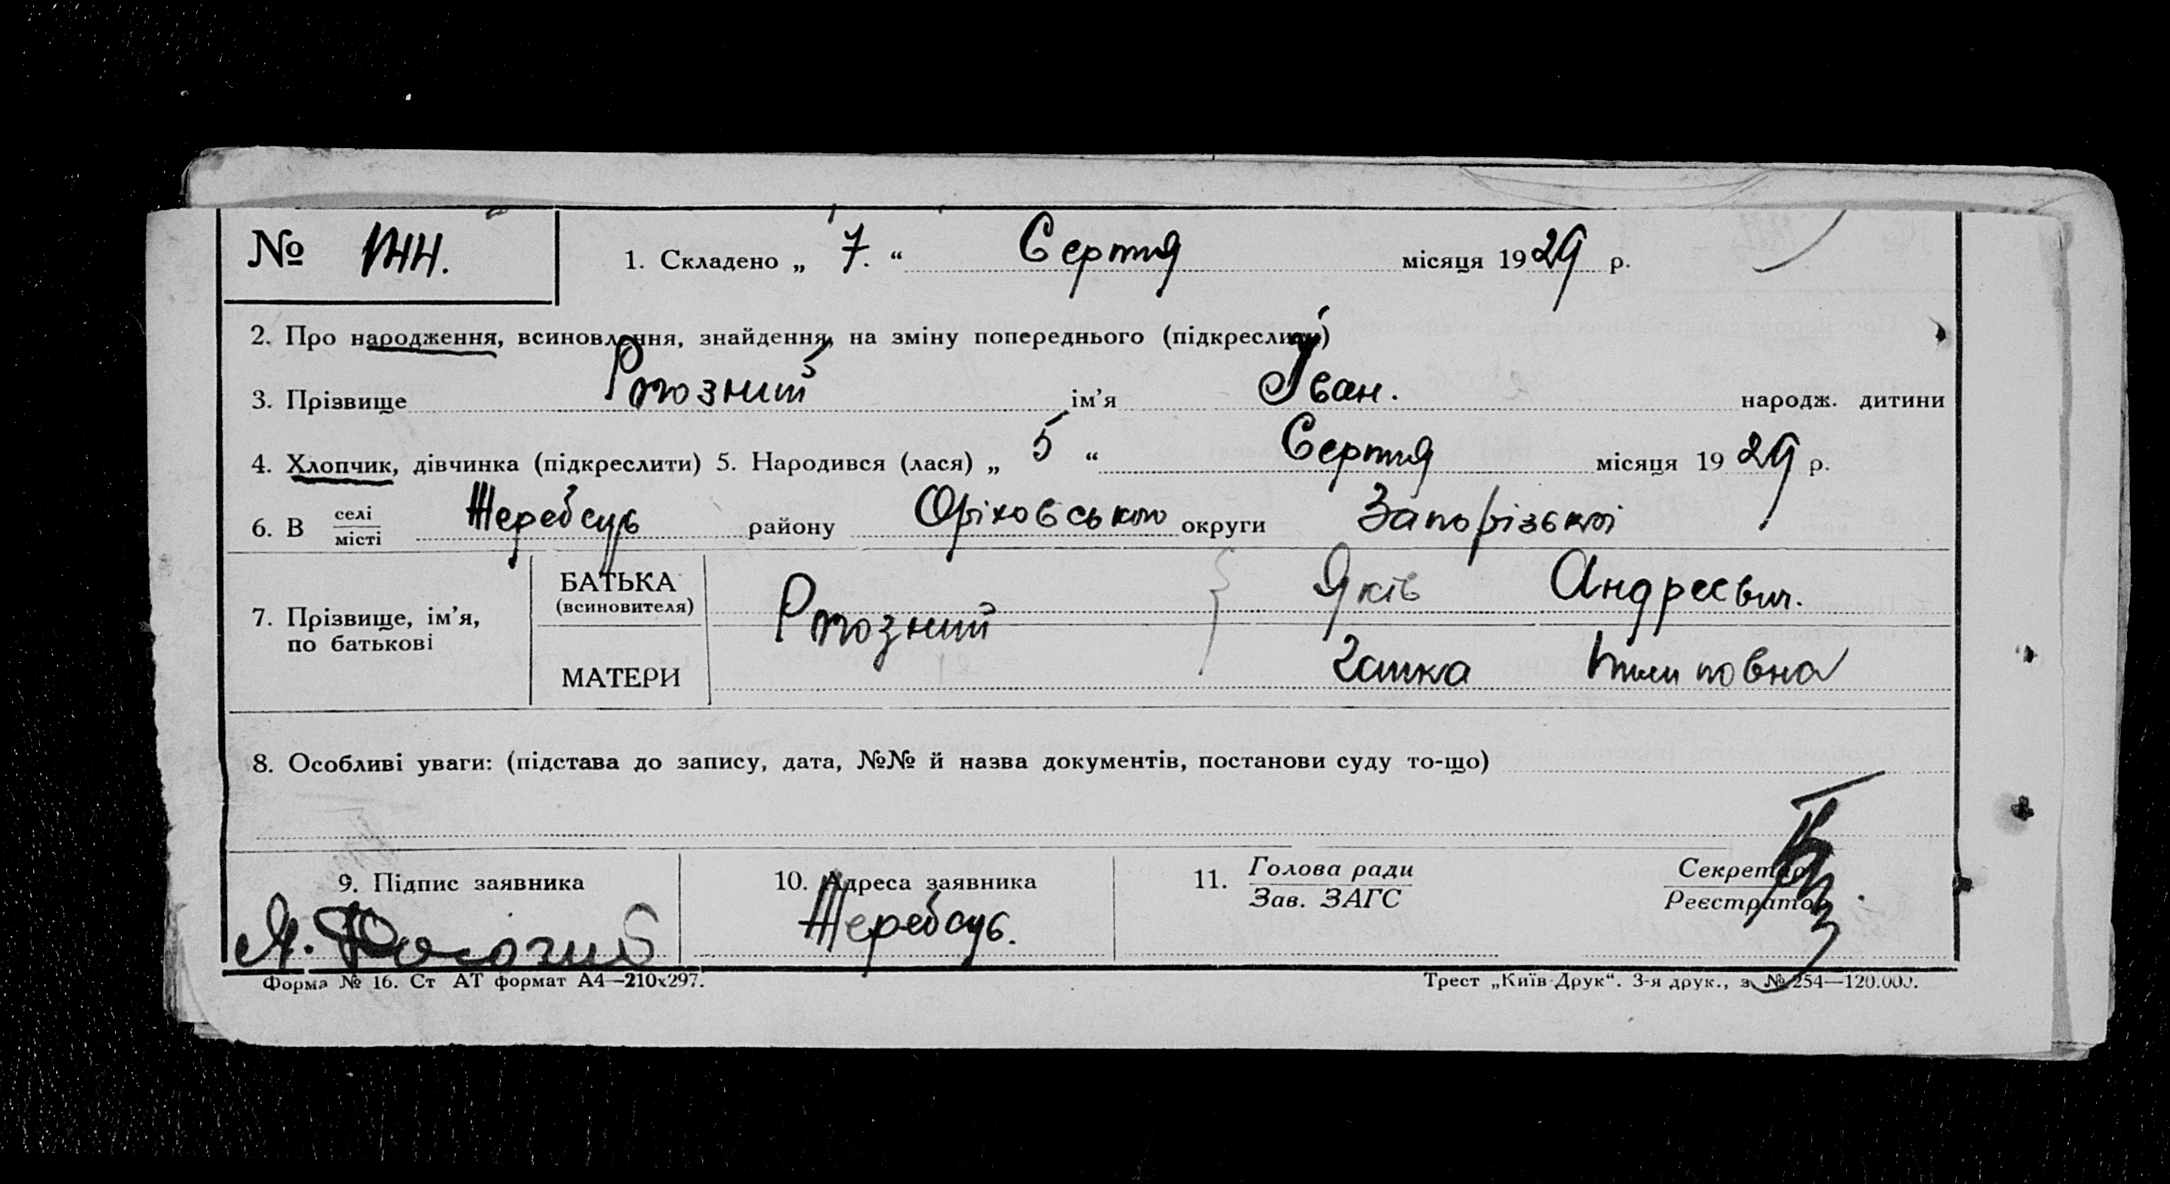 № 144.
1. Складено „ 7. “ Серпня місяця 1929 р.
2. Про народження, всиновлення, знайдення, на зміну попереднього (підкреслити)
3. Прізвище ім’я Іван. народж. дитини
4. Хлопчик, дівчинка (підкреслити) 5. Народився (лася) „ 5 “ Серпня місяця 1929 р.
6. В селі місті Жеребець району Оріховського округи Запорізької
7. Прізвище, ім’я, по батькові
БАТЬКА (всиновителя) Яків Андреєвич.
МАТЕРИ Пилиповна
8. Особливі уваги: (підстава до запису, дата, №№ й назва документів, постанови суду то-що)
9. Підпис заявника
10. Адреса заявника
Жеребець.
11. Голова ради Зав. ЗАГС
Секретар Реєстратор
Форма № 16. Ст АТ формат А4—210х297.
Трест „Київ-Друк“. 3-я друк., з. № 254—120.000.